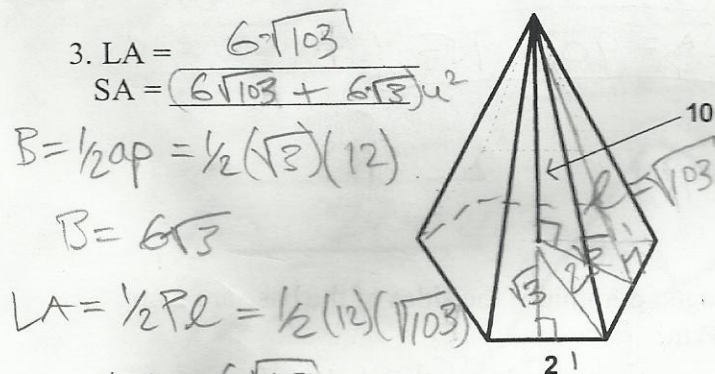 3. LA = 6√103
SA = (6√103 + 6√3)u²
B = ½ap = ½(√3)(12)
B = 6√3
LA = ½Pl = ½(12)(√103)
10
l = √103
√3
2
√3
2 1